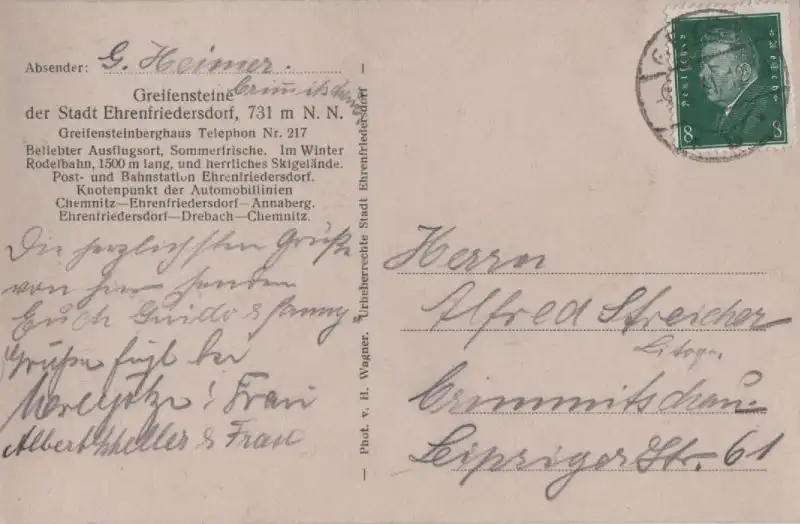 Absender: G. Heimer.
Crimmitschau
Greifensteine
der Stadt Ehrenfriedersdorf, 731 m N. N.
Greifensteinberghaus Telephon Nr. 217
Beliebter Ausflugsort, Sommerfrische. Im Winter
Rodelbahn, 1500 m lang, und herrliches Skigelände.
Post- und Bahnstation Ehrenfriedersdorf.
Knotenpunkt der Automobillinien
Chemnitz—Ehrenfriedersdorf—Annaberg.
Ehrenfriedersdorf—Drebach—Chemnitz.
Die herzlichsten Grüße
von hier senden
Euch Guido &
Grüße fügt bei
Frau
Albert & Frau
Phot. v. H. Wagner. Urheberrechte Stadt Ehrenfriedersdorf
Deutsches Reich
8 8
Herrn
Alfred Streicher
Litogr.
Crimmitschau.
Leipziger Str. 61